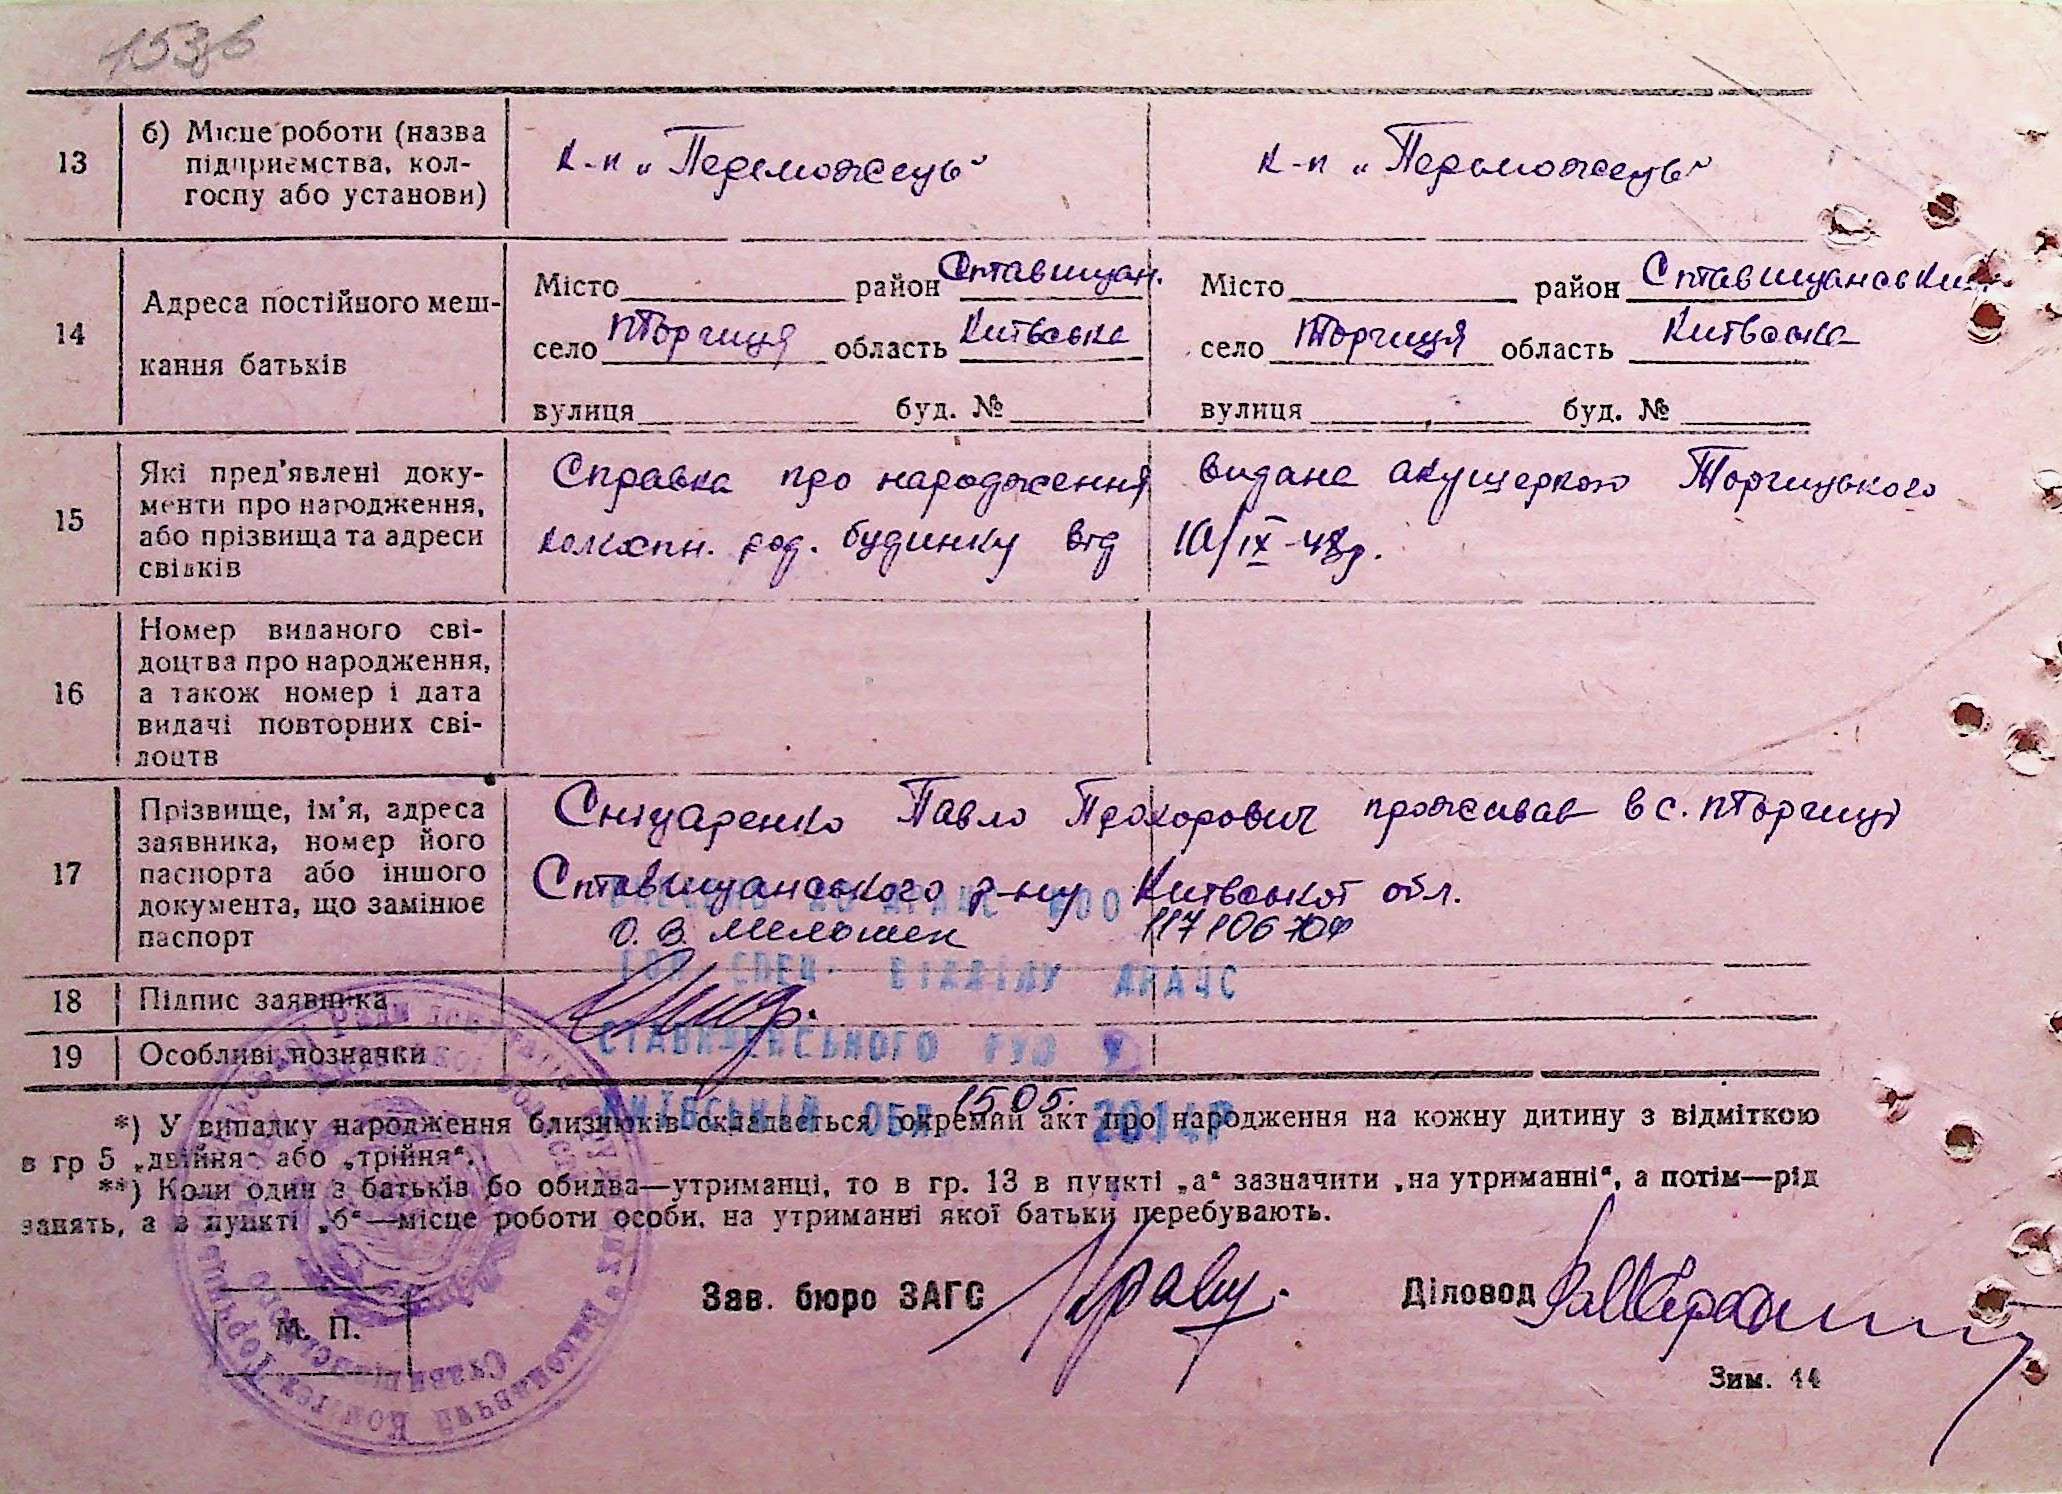 153зв
13
б) Місце роботи (назва
підприємства, кол-
госпу або установи)
к-п „Переможець"
к-п „Переможець"
14
Адреса постійного меш-
кання батьків
Місто район Ставищан.
село Торчиця область Київська
вулиця буд. №
Місто район Ставищанський
село Торчиця область Київська
вулиця буд. №
15
Які пред'явлені доку-
менти про народження,
або прізвища та адреси
свідків
Справка про народження видана акушеркою Торчицького
колхозн. род. будинку від 10/IX-48р.
16
Номер виданого сві-
доцтва про народження,
а також номер і дата
видачі повторних сві-
доцтв
17
Прізвище, ім'я, адреса
заявника, номер його
паспорта або іншого
документа, що замінює
паспорт
Сніцаренко Павло Прохорович проживає в с. Торчиці
Ставищанського р-ну Київської обл.
О. В. Мельник
18
Підпис заявника
ВІДДІЛУ ДРАЦС
19
Особливі позначки
КИЇВСЬКІЙ ОБЛ. 15 05. 2014Р
*) У випадку народження близнюків складається окремий акт про народження на кожну дитину з відміткою
в гр 5 „двійня" або „трійня".
**) Коли один з батьків бо обидва—утриманці, то в гр. 13 в пункті „а" зазначити „на утриманні", а потім—рід
занять, а в пункті „б"—місце роботи особи, на утриманні якої батьки перебувають.
Зав. бюро ЗАГС
Діловод
М. П.
Зим. 44